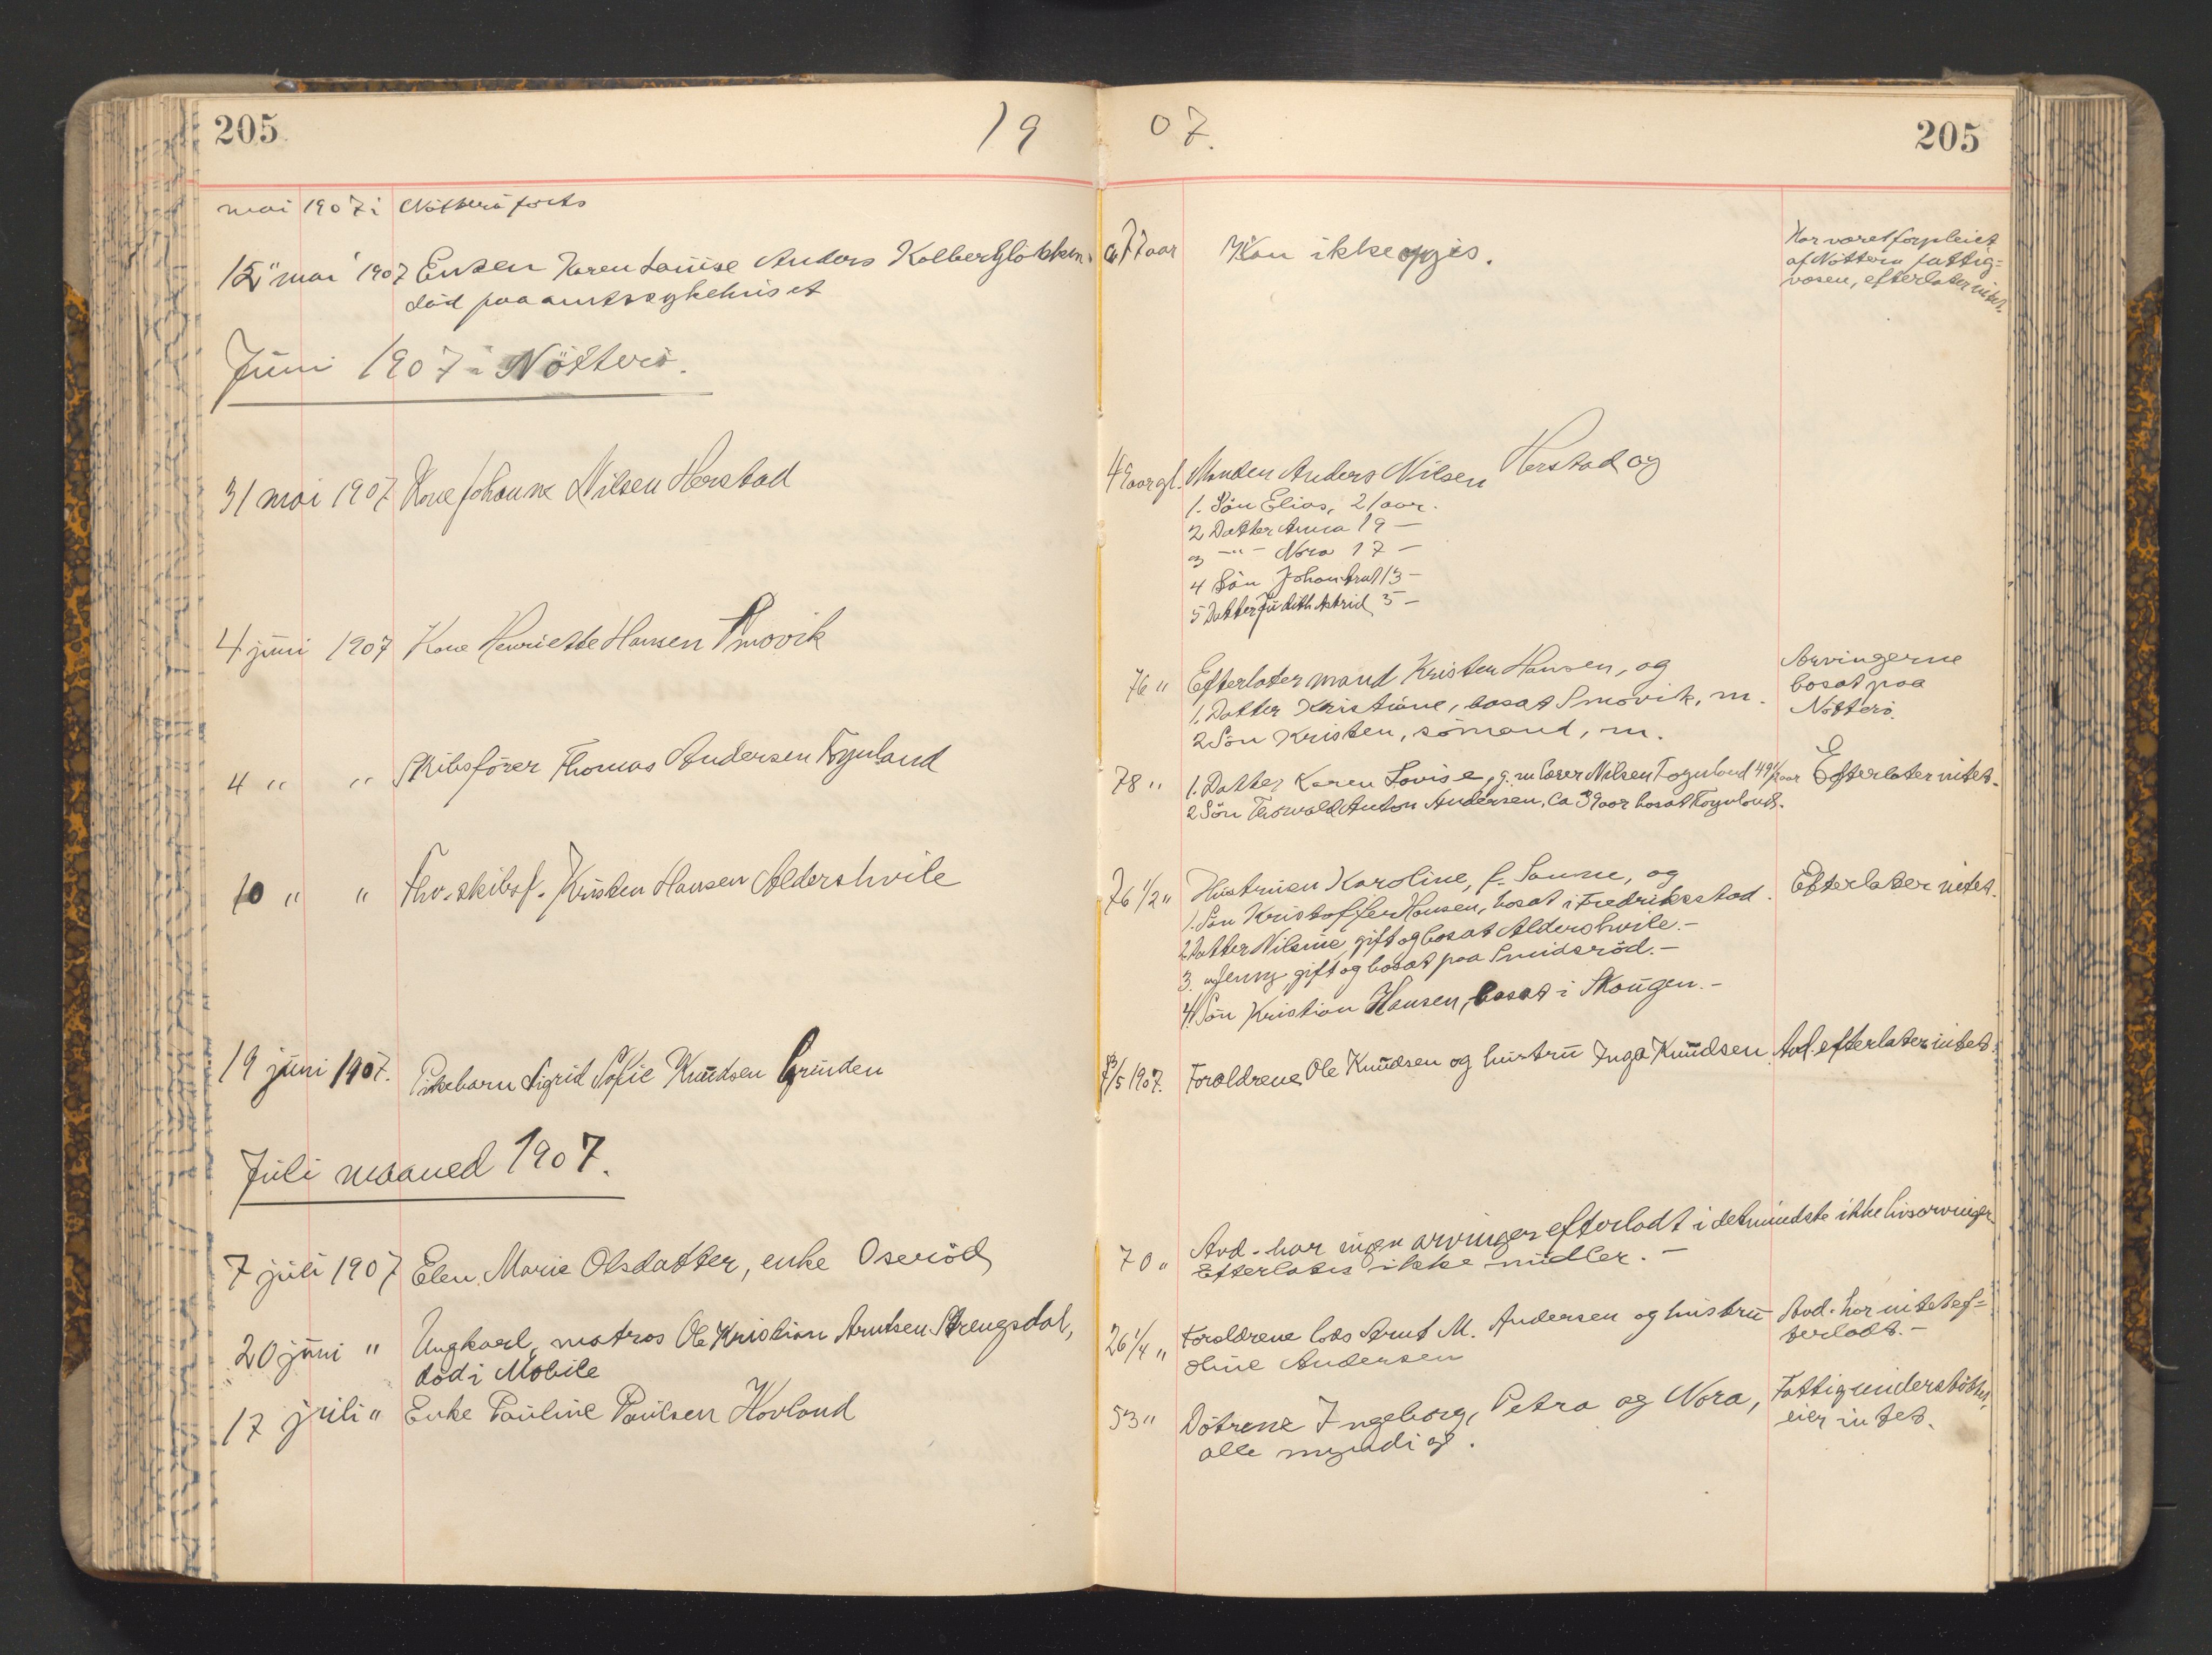 205
19
07.
205
mai 1907 i Nötterö forts
15 mai 1907 Enken Karen Louise Anders Kolberg
död paa amtssykehuset
77 aar Kan ikke opgis.
Har været forpleiet
af Nötterö fattig=
væsen, efterlater intet.
Juni 1907 i Nötterö.
31 mai 1907 Kone Johanne Nilsen Herstad
49 aar gl. Manden Anders Nilsen Herstad og
1. Sön Elias, 21 aar.
2 Datter Anna 19 —
3 —"— Nora 17 —
4 Sön Johan 13 —
5 Datter Judith Astrid 5 —
4 juni 1907 Kone Henriette Hansen Smovik
76 " Efterlater mand Kristen Hansen, og
1. Datter Kristiane, bosat Smovik, m.
2 Sön Kristen, sömand, m.
Arvingerne
bosat paa
Nötterö.
4 " " Skibsförer Thomas Andersen Föynland
78 " 1. Datter Karen Lovise, g. m. Nilsen Föynland 49 1/2 aar
2 Sön Thorvald Anton Andersen, ca 39 aar bosat Föynland.
Efterlater intet.
10 " " Fhv. skibsf. Kristen Hansen Aldershvile
76 1/2 " Hustruen Karoline, f. Sanne, og
1. Sön Kristoffer Hansen, bosat i Fredriksstad.
2 Datter Nilsine, gift og bosat Aldershvile.—
3. " Jenny gift og bosat paa Smidsröd.—
4. Sön Kristian Hansen, bosat i Skougen.—
Efterlater intet.
19 juni 1907. Pikebarn Sigrid Sofie Knudsen Grinden
/5 1907. Forældrene Ole Knudsen og hustru Inga Knudsen
Avd. efterlater intet.
Juli maaned 1907.
7 juli 1907 Elen Marie Olsdatter, enke Oseröd
70 " Avd. har ingen arvinger efterladt i detmindste ikke livsarvinger
Efterlates ikke midler.—
20 juni " Ungkarl, matros Ole Kristian Arntsen Strengsdal,
död i Mobile
26 1/4 " Forældrene lods Arnt M. Andersen og hustru
Oline Andersen
Avd. har intet ef=
terladt.—
17 juli " Enke Pauline Paulsen Hovland
53 " Dötrene Ingeborg, Petra og Nora,
alle myndige.
Fattigunderstöttet,
eier intet.